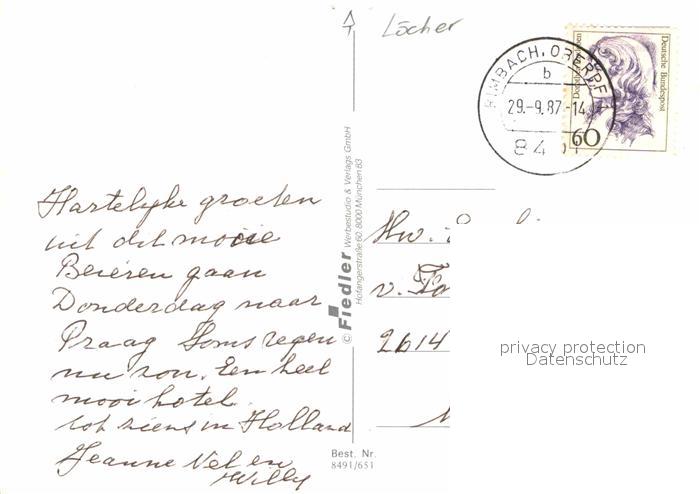 Löcher
RIMBACH, OBERPF
b
29.-9.87-14
84
Deutsche Bundespost
60
Hartelyke groeten
uit dit mooie
Beieren gaan
Donderdag naar
Praag Soms regen
nu zon. Een heel
mooi hotel.
tot ziens in Holland
Jeanne Nel en
Willy
© Fiedler Werbestudio & Verlags GmbH
Hofangerstraße 60, 8000 München 83
Best. Nr.
8491/651
v.
2614
privacy protection
Datenschutz